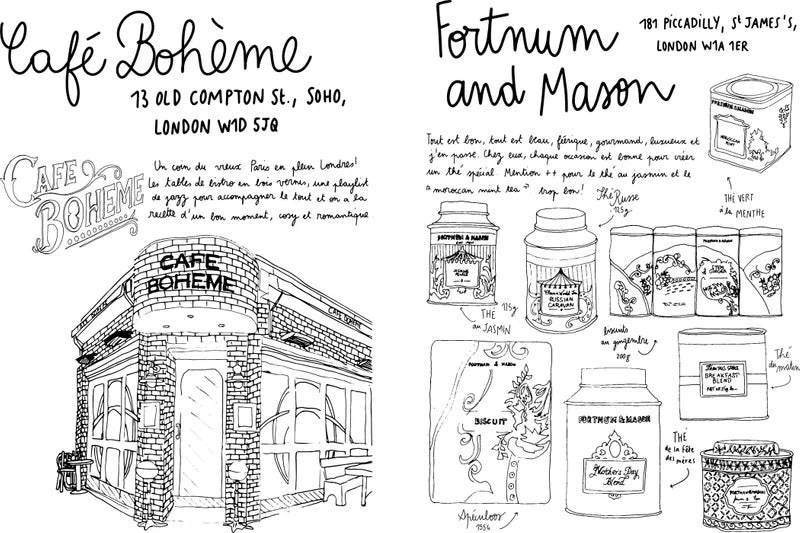 Café Bohème
13 OLD COMPTON St., SOHO,
LONDON W1D 5JQ
CAFE
BOHEME
Un coin du vieux Paris en plein Londres!
les tables de bistro en bois vernis, une playlist
de jazz pour accompagner le tout et on a la
recette d'un bon moment, cosy et romantique
CAFE
BOHEME
Fortnum
and Mason
181 PICCADILLY, St JAMES'S,
LONDON W1A 1ER
Tout est bon, tout est beau, féérique, gourmand, luxueux et
j'en passe. Chez eux, chaque occasion est bonne pour créer
un thé spécial. Mention ++ pour le thé au jasmin et le
"moroccan mint tea" trop bon!
FORTNUM & MASON
MOROCCAN
MINT
THÉ VERT
à la MENTHE
FORTNUM & MASON
THÉ
au JASMIN
125g
Thé Russe
125g
RUSSIAN
CARAVAN
biscuits
au gingembre
200g
FORTNUM & MASON
BISCUIT
Spéculoos
135g
FORTNUM & MASON
Mother's Day
Blend
THÉ
de la fête
des mères
BREAKFAST
BLEND
Thé
du matin
FORTNUM & MASON